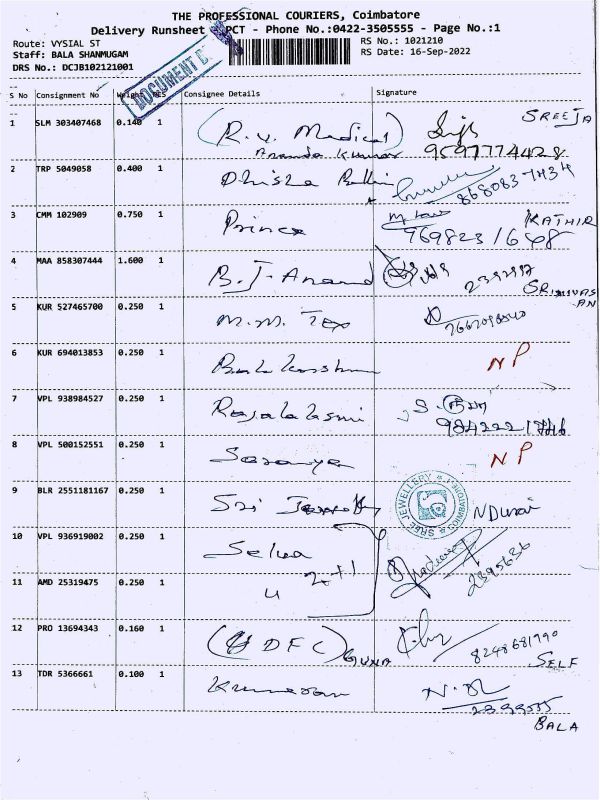 THE PROFESSIONAL COURIERS, Coimbatore
Delivery Runsheet PCT - Phone No.:0422-3505555 - Page No.:1
Route: VYSIAL ST
RS No.: 1021210
Staff: BALA SHANMUGAM
RS Date: 16-Sep-2022
DRS No.: DCJB102121001
DOCUMENT
S No Consignment No Weight PCS Consignee Details Signature
SREEJA
1 SLM 303407468 0.140 1 (R.V. Medical)
Ananda Kumar 9597774428
2 TRP 5049058 0.400 1 Dhisha
3 CMM 102909 0.750 1 Prince KATHIR
4 MAA 858307444 1.600 1 B.J-Anand
SRINIVASAN
5 KUR 527465700 0.250 1 M.M. Tex
6 KUR 694013853 0.250 1 NP
7 VPL 938984527 0.250 1 Rajalaksmi S.
8 VPL 500152551 0.250 1 Saranya NP
9 BLR 2551181167 0.250 1 Sri NDurai
SREE JEWELLERY COIMBATORE-1
10 VPL 936919002 0.250 1 Selva
2+1 2395636
11 AMD 25319475 0.250 1 "
12 PRO 13694343 0.160 1 (HDFC) GUNA 8248681990
SELF
13 TDR 5366661 0.100 1 Kumaran
BALA